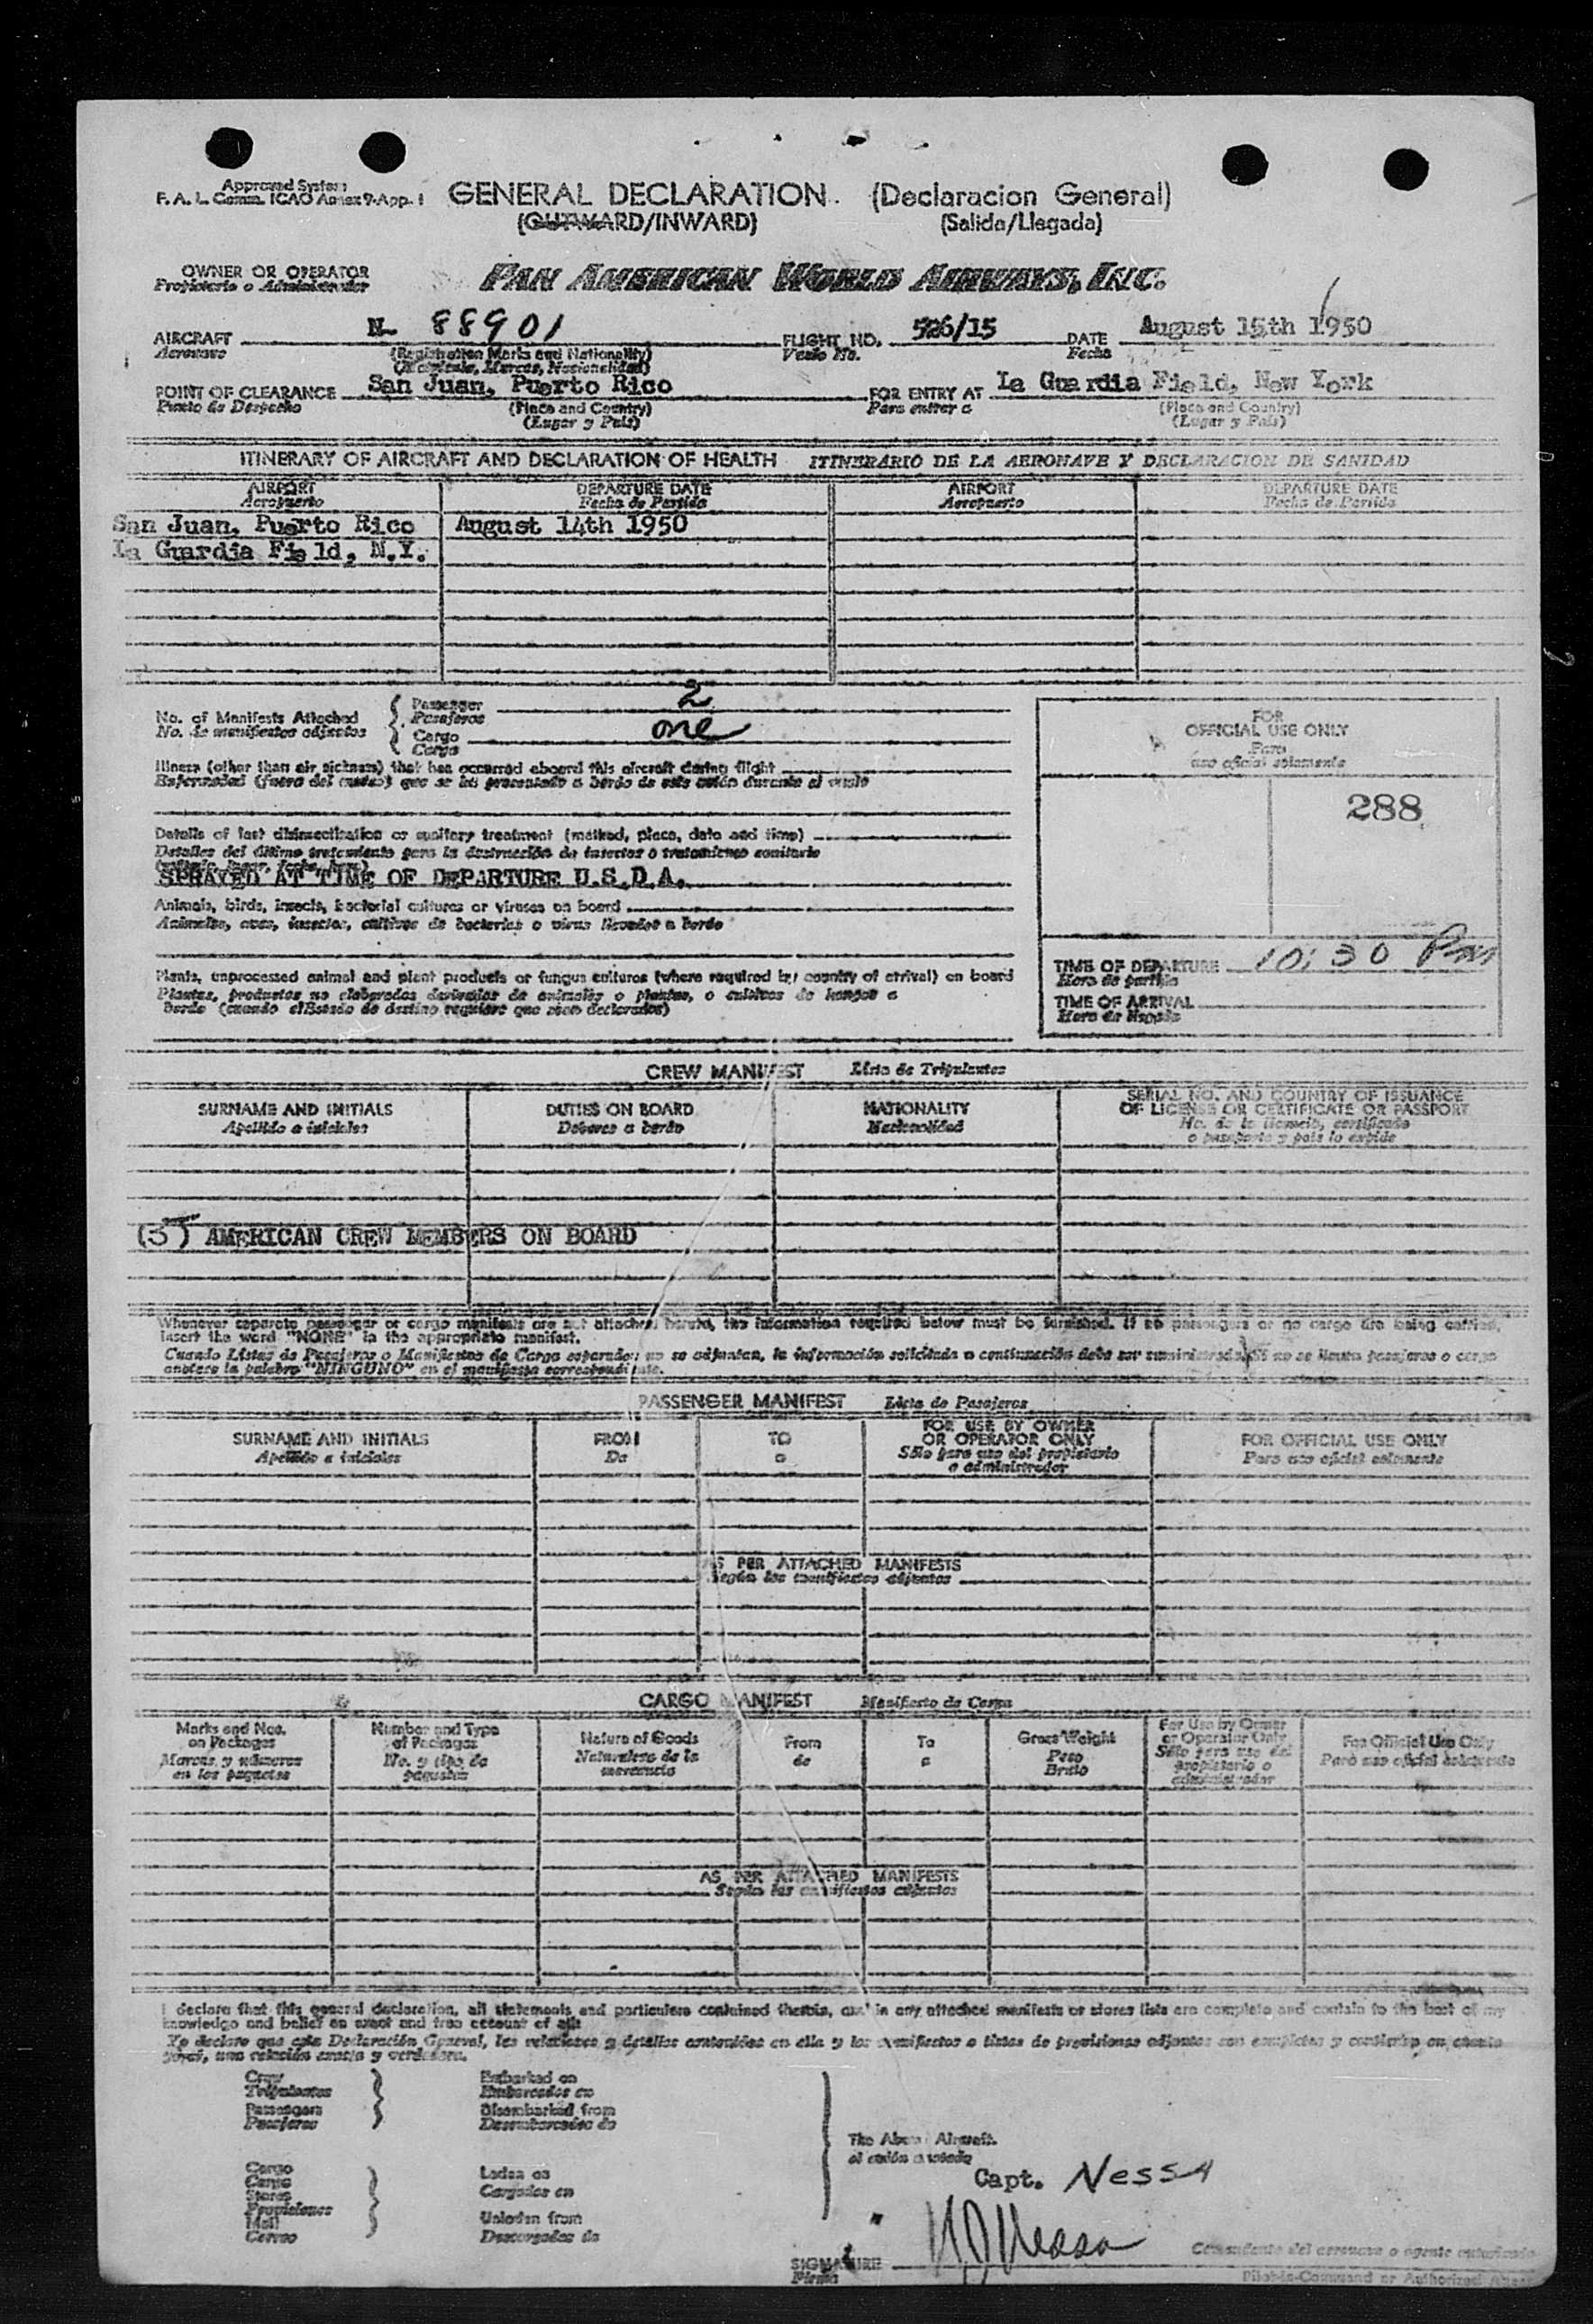 Approved System
F. A. L. Comm. ICAO Annex 9-App. 1
GENERAL DECLARATION. (Declaracion General)
(OUTWARD/INWARD) (Salida/Llegada)
OWNER OR OPERATOR
Propietario o Administrador
PAN AMERICAN WORLD AIRWAYS, INC.
AIRCRAFT N- 88901 FLIGHT NO. 526/15 DATE August 15th 1950
Aeronave (Registration Marks and Nationality) Vuelo No. Fecha
(Matricula, Marcas, Nacionalidad)
POINT OF CLEARANCE San Juan, Puerto Rico FOR ENTRY AT La Guardia Field, New York
Punto de Despacho (Place and Country) Para entrar a (Place and Country)
(Lugar y País) (Lugar y País)
ITINERARY OF AIRCRAFT AND DECLARATION OF HEALTH ITINERARIO DE LA AERONAVE Y DECLARACION DE SANIDAD
AIRPORT DEPARTURE DATE AIRPORT DEPARTURE DATE
Aeropuerto Fecha de Partida Aeropuerto Fecha de Partida
San Juan, Puerto Rico August 14th 1950
La Guardia Field, N.Y.
No. of Manifests Attached
No. de manifiestos adjuntos
Passenger 2
Pasajeros
Cargo one
Carga
FOR
OFFICIAL USE ONLY
Para
uso oficial solamente
288
Illness (other than air sickness) that has occurred aboard this aircraft during flight
Enfermedad (fuera del mareo) que se ha presentado a bordo de este avión durante el vuelo
Details of last disinsectization or sanitary treatment (method, place, date and time)
Detalles del último tratamiento para la destrucción de insectos o tratamiento sanitario
SPRAYED AT TIME OF DEPARTURE U.S.D.A.
Animals, birds, insects, bacterial cultures or viruses on board
Animales, aves, insectos, cultivos de bacterias o virus llevados a bordo
TIME OF DEPARTURE 10:30 Pm
Hora de partida
TIME OF ARRIVAL
Hora de llegada
Plants, unprocessed animal and plant products or fungus cultures (where required by country of arrival) on board
Plantas, productos no elaborados derivados de animales o plantas, o cultivos de hongos a
bordo (cuando el Estado de destino requiere que sean declarados)
CREW MANIFEST Lista de Tripulantes
SURNAME AND INITIALS DUTIES ON BOARD NATIONALITY SERIAL NO. AND COUNTRY OF ISSUANCE
OF LICENSE OR CERTIFICATE OR PASSPORT
Apellido e iniciales Deberes a bordo Nacionalidad No. de la licencia, certificado
o pasaporte y país lo expide
(5) AMERICAN CREW MEMBERS ON BOARD
Whenever separate passenger or cargo manifests are not attached hereto, the information required below must be furnished. If no passengers or no cargo are being carried,
insert the word "NONE" in the appropriate manifest.
Cuando Listas de Pasajeros o Manifiestos de Carga separados no se adjuntan, la información solicitada a continuación debe ser suministrada. Si no se llevan pasajeros o carga
anótese la palabra "NINGUNO" en el manifiesto correspondiente.
PASSENGER MANIFEST Lista de Pasajeros
SURNAME AND INITIALS FROM TO FOR USE BY OWNER
OR OPERATOR ONLY FOR OFFICIAL USE ONLY
Apellido e iniciales De a Sólo para uso del propietario
o administrador Para uso oficial solamente
AS PER ATTACHED MANIFESTS
Según los manifiestos adjuntos
CARGO MANIFEST Manifiesto de Carga
Marks and Nos.
on Packages
Marcas y números
en los paquetes
Number and Type
of Packages
No. y tipo de
paquetes
Nature of Goods
Naturaleza de la
mercancía
From
de
To
a
Gross Weight
Peso
Bruto
For Use by Owner
or Operator Only
Sólo para uso del
propietario o
administrador
For Official Use Only
Para uso oficial solamente
AS PER ATTACHED MANIFESTS
Según los manifiestos adjuntos
I declare that this general declaration, all statements and particulars contained therein, and in any attached manifests or stores lists are complete and contain to the best of my
knowledge and belief an exact and true account of all:
Yo declaro que esta Declaración General, las relaciones y detalles contenidos en ella y los manifiestos o listas de provisiones adjuntas son completas y contienen en cuanto
una relación exacta y verdadera.
Crew
Tripulantes
Passengers
Pasajeros
Embarked on
Embarcados en
Disembarked from
Desembarcados de
The Above Aircraft.
el avión
Cargo
Carga
Stores
Provisiones
Mail
Correo
Laden on
Cargados en
Unladen from
Descargados de
Capt. Nessa
SIGNATURE
Firma
Comandante del aeronave o agente autorizado
Pilot-in-Command or Authorized Agent